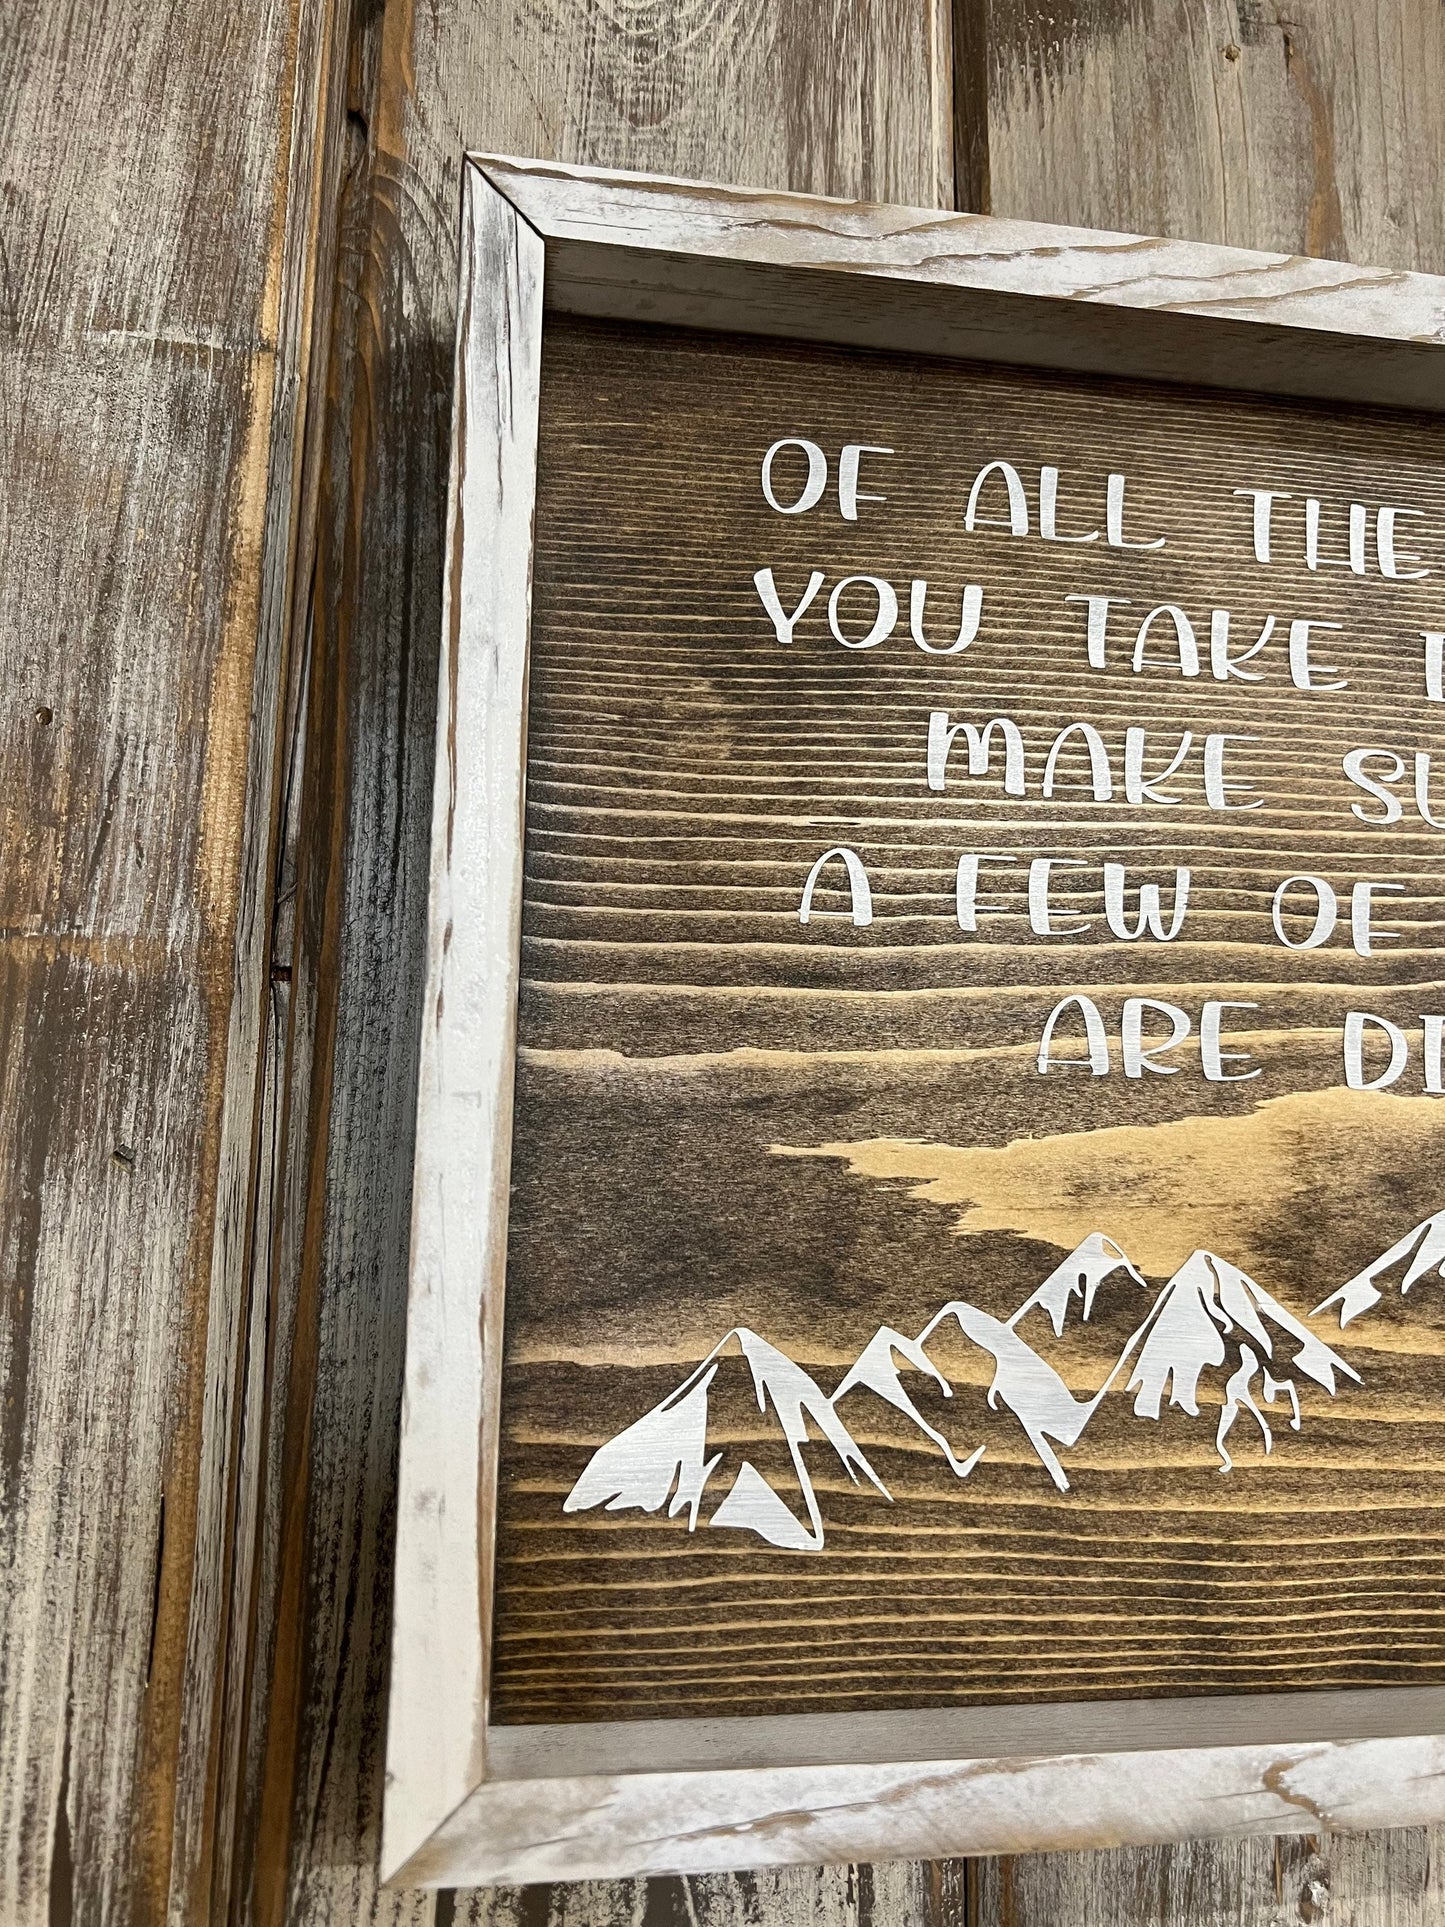 OF ALL THE
YOU TAKE
MAKE
A FEW OF
ARE